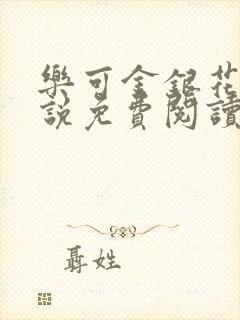 樂可金銀花
說免費閱讀
聶姓